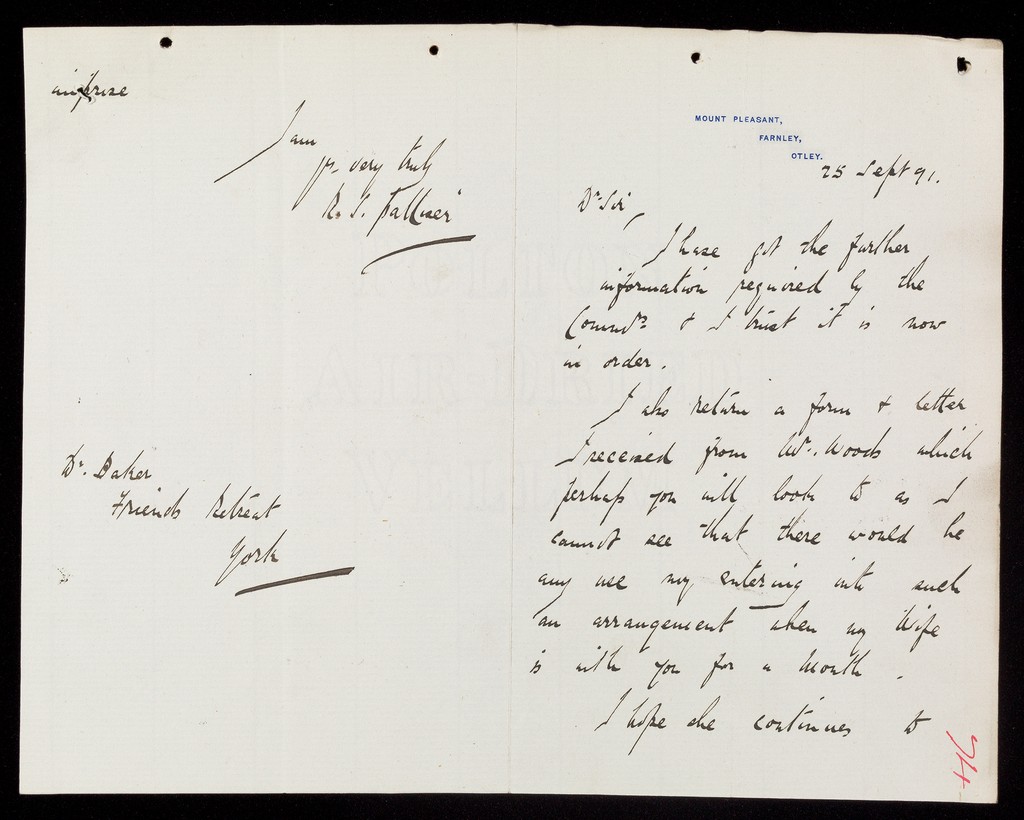 MOUNT PLEASANT,
FARNLEY,
OTLEY.
25 Sept 91.
Dr Sir,
I have got the further
information required by the
Commrs & I trust it is now
in order.
I also return a form & letter
I received from Mr. Woods which
perhaps you will look to as I
cannot see that there would be
any use my entering into such
an arrangement when my Wife
is with you for a Month.
I hope she continues to
improve
I am
yrs very truly
R. S.
Dr. Baker
Friends Retreat
York